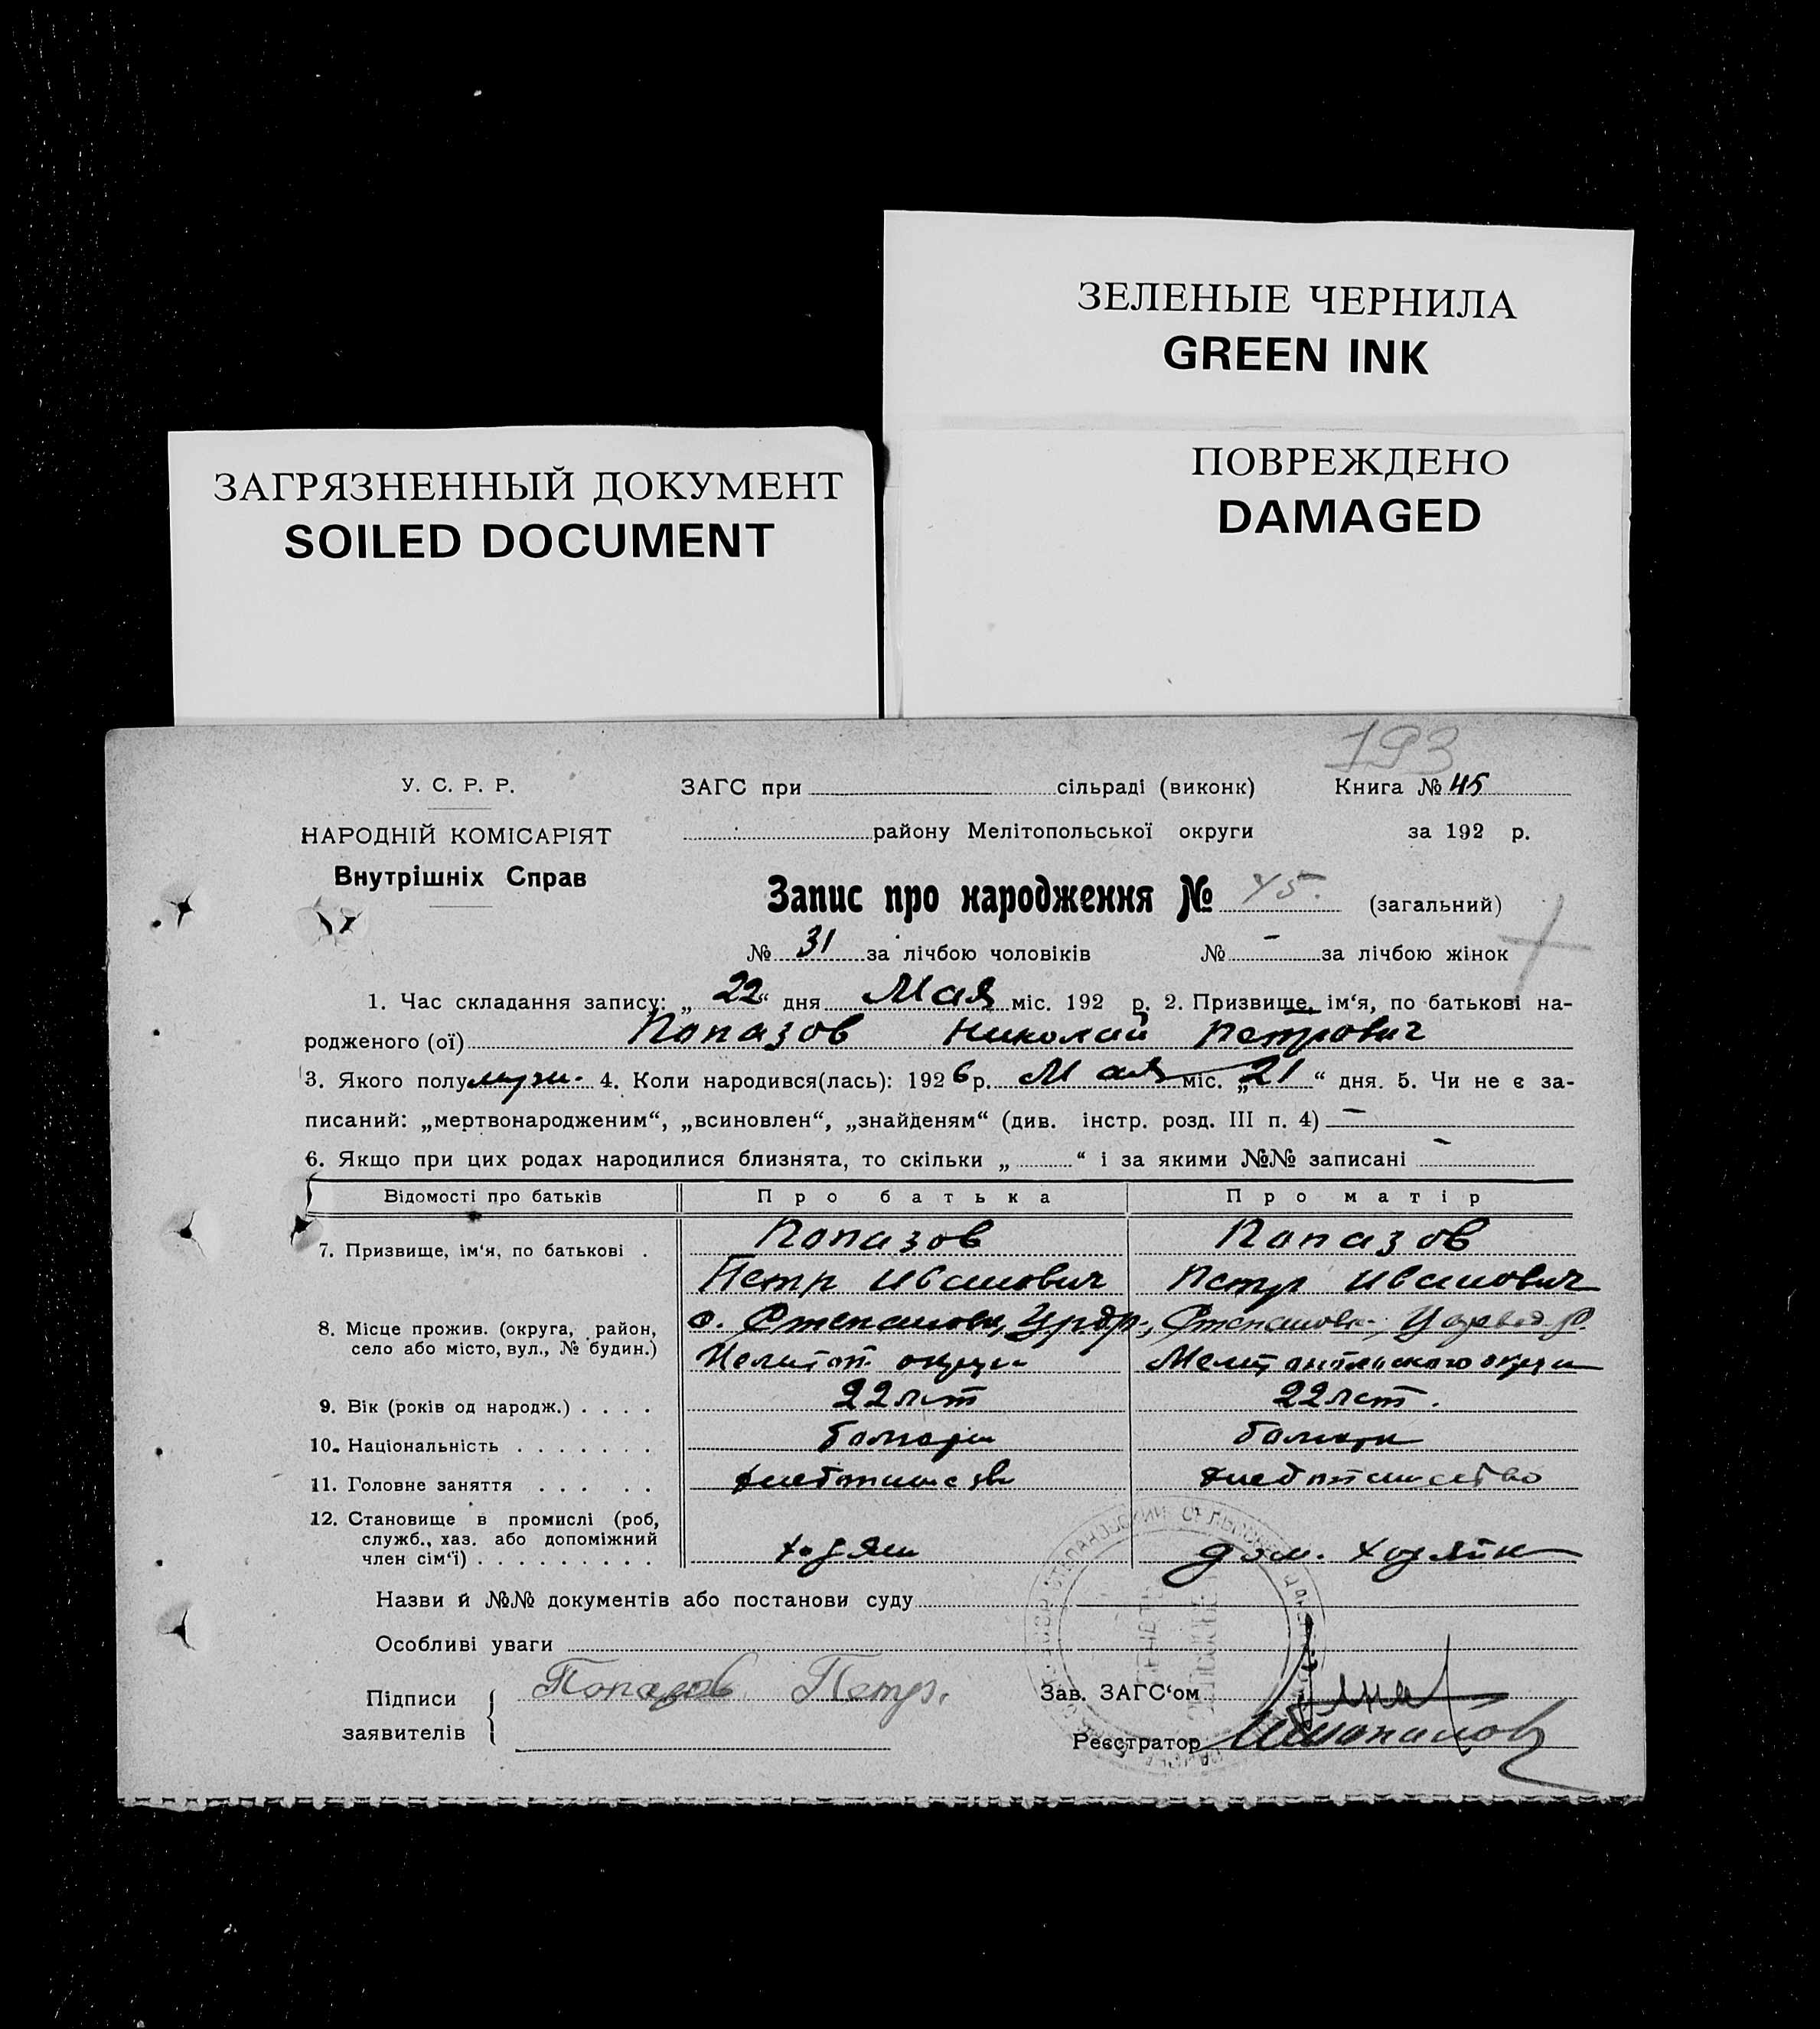 ЗЕЛЕНЫЕ ЧЕРНИЛА
GREEN INK
ПОВРЕЖДЕНО
DAMAGED
ЗАГРЯЗНЕННЫЙ ДОКУМЕНТ
SOILED DOCUMENT
193
У. С. Р. Р.
НАРОДНІЙ КОМІСАРІЯТ
Внутрішніх Справ
ЗАГС при сільраді (виконк) Книга № 45
району Мелітопольської округи за 192 р.
Запис про народження № 45. (загальний)
№ 31 за лічбою чоловіків № - за лічбою жінок
1. Час складання запису: „22“ дня Мая міс. 192 р. 2. Призвище, ім‘я, по батькові на-
родженого (ої) Попазов Николай Петрович
3. Якого полу мужч. 4. Коли народився(лась): 1926 р. Мая міс. „21“ дня. 5. Чи не є за-
писаний: „мертвонародженим“, „всиновлен“, „знайденям“ (див. інстр. розд. III п. 4) —
6. Якщо при цих родах народилися близнята, то скільки „ “ і за якими №№ записані -
Відомості про батьків Про батька Про матір
7. Призвище, ім‘я, по батькові . Попазов Попазов
Петр Иванович Петр Иванович
8. Місце прожив. (округа, район, с. Степановки, Степановка
село або місто, вул., № будин.) Мелитоп округи Мелитопольского округи
9. Вік (років од народж.) . . . . 22 лет 22 лет.
10. Національність . . . . . . . болгарин болгарк
11. Головне заняття . . . . . хлебопашество хлебопашество
12. Становище в промислі (роб,
служб., хаз. або допоміжний
член сім‘ї) . . . . . . . . . хозяин дом. хозяйк
Назви й №№ документів або постанови суду
Особливі уваги
Підписи Попазов Петр. Зав. ЗАГС‘ом
заявителів Реєстратор